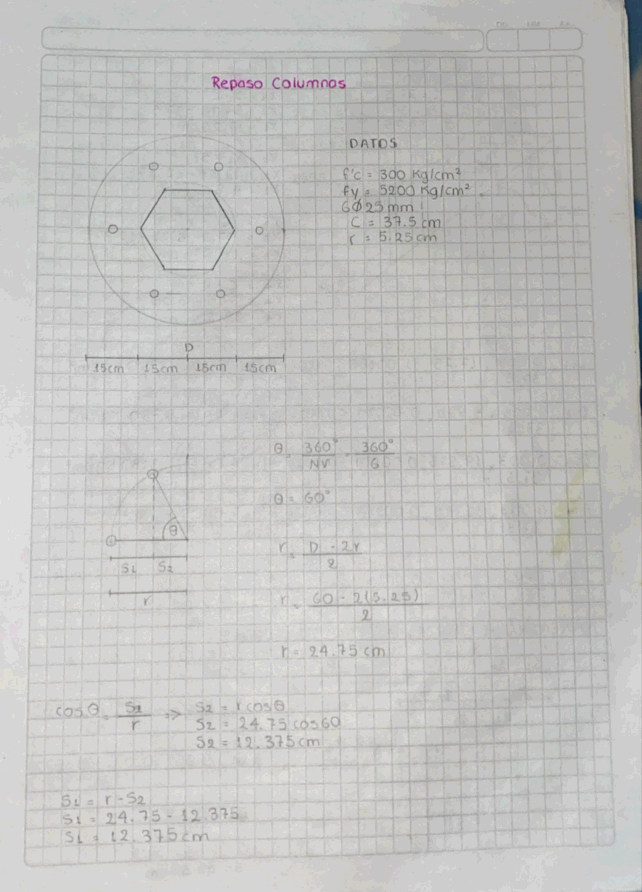 Repaso Columnas
DATOS
f'c = 300 Kg/cm²
fy = 5200 Kg/cm²
6Φ25mm
C = 37.5 cm
r = 5.25 cm
D
15cm 15cm 15cm 15cm
θ = 360° / NV = 360° / 6
θ = 60°
θ
S1 S2
r
r = D - 2r / 2
r = 60 - 2(5.25) / 2
r = 24.75 cm
cos θ = S2 / r => S2 = r cos θ
S2 = 24.75 cos 60
S2 = 12.375 cm
S1 = r - S2
S1 = 24.75 - 12.375
S1 = 12.375 cm